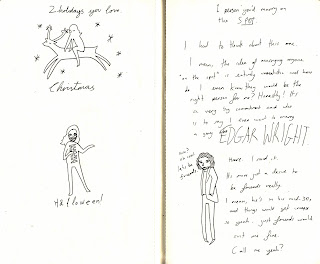 2 holidays you love.
Christmas
Halloween!
1 person you'd marry on
the SPOT.
I had to think about this one.
I mean, the idea of marrying anyone
"on the spot" is entirely unrealistic and how
do I even know they would be the
right person for me? Honestly! It's
a very big commitment and who
is to say I even want to marry
a guy like
EDGAR WRIGHT
let's be
friends
There. I said it.
It's more just a desire to
be friends really.
I mean, he's in his mid-30s,
and things would get
so yeah. just friends would
suit me fine.
Call me yeah?